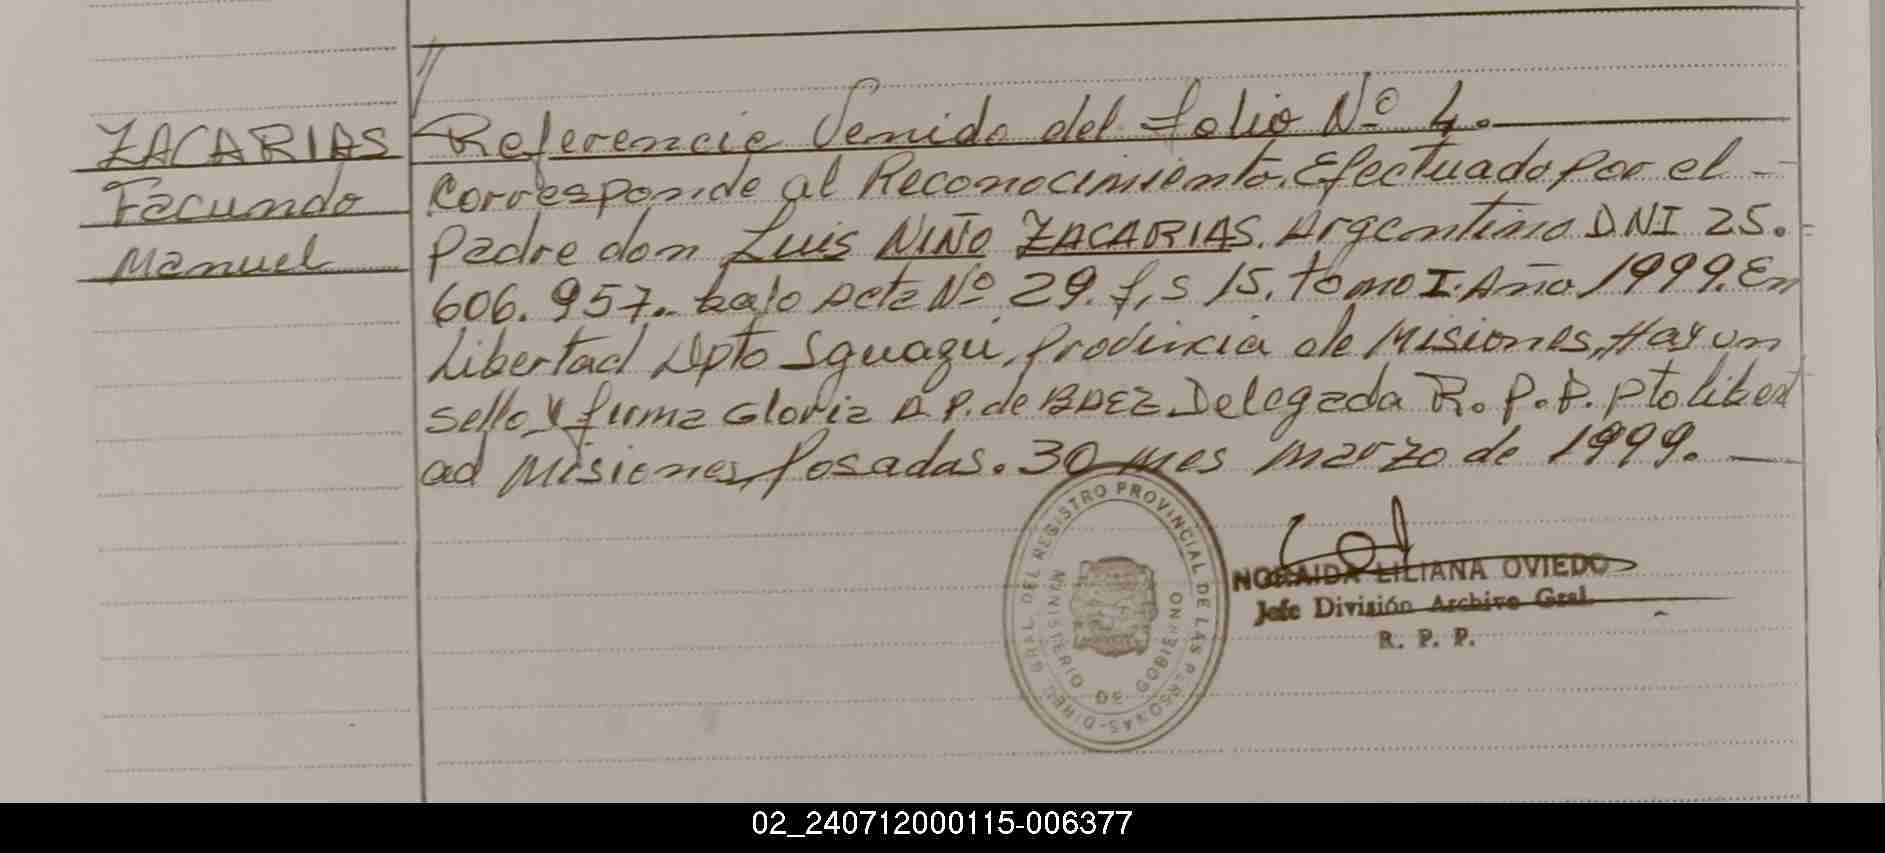 ZACARIAS
Facundo
Manuel
Referencia Venida del folio Nº 4.
Corresponde al Reconocimiento. Efectuado por el
padre don Luis NIÑO ZACARIAS. Argentino DNI 25.
606.957. bajo Acta Nº 29. f,s 15. tomo I. Año 1999. En
Libertad Dpto Iguazú, Provincia de Misiones, Hay un
sello y firma Gloria A P. de BAEZ Delegada R. P. P. pto libert
ad Misiones, Posadas. 30 mes marzo de 1999.
DIREC. GRAL. DEL REGISTRO PROVINCIAL DE LAS PERSONAS
MINISTERIO DE GOBIERNO
NORAIDA LILIANA OVIEDO
Jefe División Archivo Gral.
R. P. P.
02_240712000115-006377